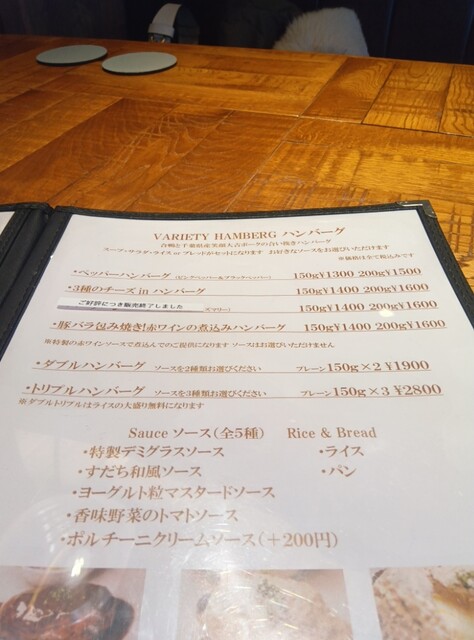 VARIETY HAMBERG ハンバーグ
合鴨と千葉県産芙蓉大吉ポークの合い挽きハンバーグ
スープ・サラダ・ライス or ブレッドがセットになります お好きなソースをお選びいただけます
※価格は全て税込みです
・ペッパーハンバーグ (ピンクペッパー&ブラックペッパー) 150g¥1300 200g¥1500
・3種のチーズ in ハンバーグ 150g¥1400 200g¥1600
ご好評につき販売終了しました ズマリー) 150g¥1400 200g¥1600
・豚バラ包み焼き!赤ワインの煮込みハンバーグ 150g¥1400 200g¥1600
※特製の赤ワインソースで煮込んでのご提供になります ソースはお選びいただけません
・ダブルハンバーグ ソースを2種類お選びください プレーン150g×2 ¥1900
・トリプルハンバーグ ソースを3種類お選びください プレーン150g×3 ¥2800
※ダブルトリプルはライスの大盛り無料になります
Sauce ソース(全5種) Rice & Bread
・特製デミグラスソース ・ライス
・すだち和風ソース ・パン
・ヨーグルト粒マスタードソース
・香味野菜のトマトソース
・ポルチーニクリームソース(+200円)